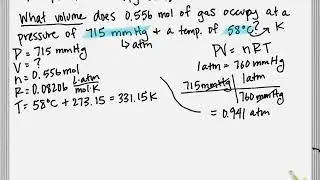 What volume does 0.556 mol of gas occupy at a
pressure of 715 mmHg + a temp. of 58°C? K
↳atm
P = 715 mmHg
V = ?
n = 0.556mol
R = 0.08206 L·atm/mol·K
T = 58°C + 273.15 = 331.15K
PV = nRT
1atm = 760mmHg
715mmHg | 1atm
760mmHg
= 0.941 atm